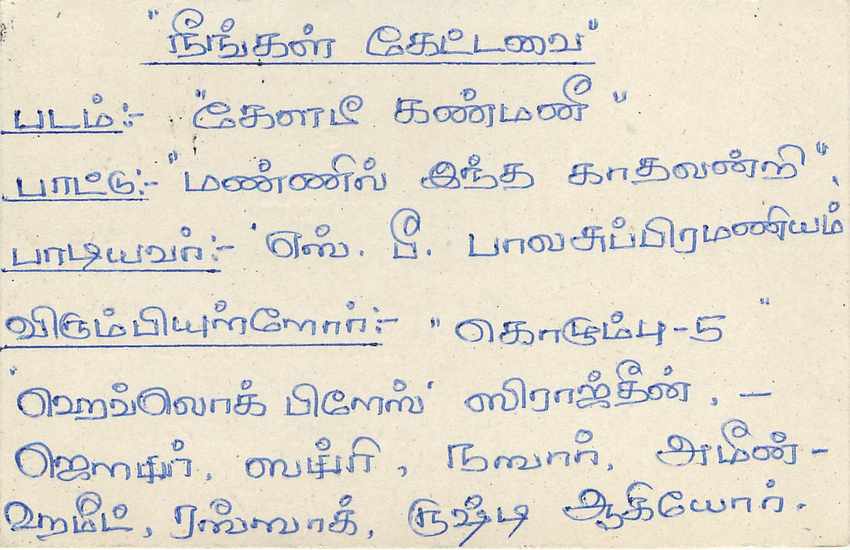 "நீங்கள் கேட்டவை"
படம்:- "கேளடி கண்மணி"
பாட்டு:- "மண்ணில் இந்த காதலன்றி",
பாடியவர்:- 'எஸ். பீ. பாலசுப்பிரமணியம்
விரும்பியுள்ளோர்:- "கொழும்பு-5"
'ஹெவ்லொக் பிளேஸ்' ஸிராஜ்தீன், -
ஜௌபர், ஸப்ரி, நஸார், அமீன்-
ஹமீட், ரஸ்ஸாக், ருஷ்டி ஆகியோர்.